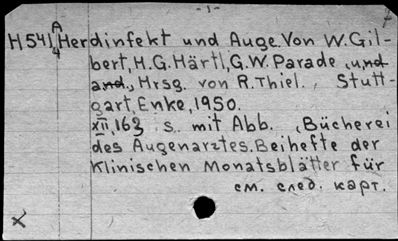 - 1 -
H 541 A/4 Herdinfekt und Auge. Von W. Gil-
bert, H. G. Härtl, G. W. Parade , und
and., Hrsg. von R. Thiel. , Stutt-
gart, Enke, 1950.
XII, 163 s. mit Abb. , Bücherei
des Augenarztes. Beihefte der
Klinischen Monatsblätter für
см. след. карт.
X